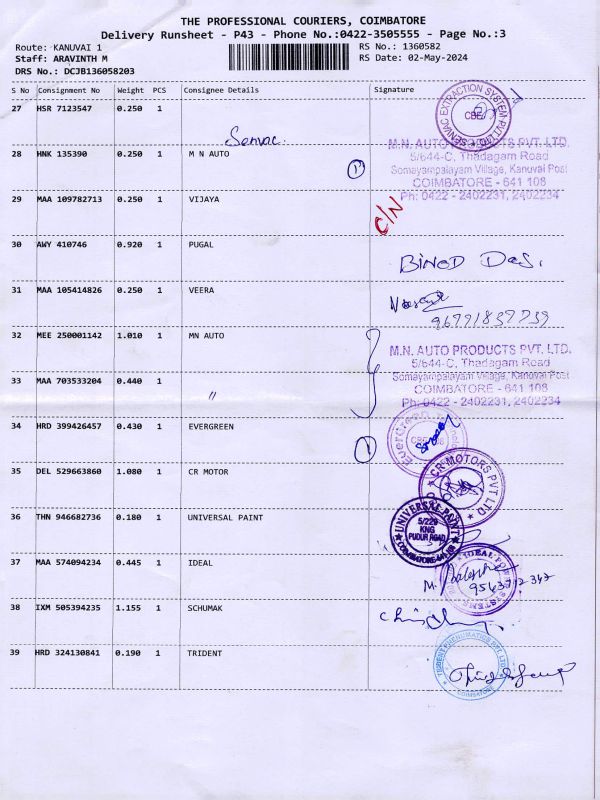 THE PROFESSIONAL COURIERS, COIMBATORE
Delivery Runsheet - P43 - Phone No.:0422-3505555 - Page No.:3
Route: KANUVAI 1
RS No.: 1360582
Staff: ARAVINTH M
RS Date: 02-May-2024
DRS No.: DCJB136058203
S No Consignment No Weight PCS Consignee Details Signature
27 HSR 7123547 0.250 1
SENVAC EXTRACTION SYSTEM PVT LTD
CBE
Senvac.
28 HNK 135390 0.250 1 M N AUTO
M.N. AUTO PRODUCTS PVT. LTD.
5/644-C, Thadagam Road
Somayampalayam Village, Kanuvai Post
COIMBATORE - 641 108
Ph: 0422 - 2402231, 2402234
29 MAA 109782713 0.250 1 VIJAYA
C/N
30 AWY 410746 0.920 1 PUGAL
BINOD Das.
31 MAA 105414826 0.250 1 VEERA
32 MEE 250001142 1.010 1 MN AUTO
M.N. AUTO PRODUCTS PVT. LTD.
5/644-C, Thadagam Road
Somayampalayam Village, Kanuvai Post
COIMBATORE - 641 108
Ph: 0422 - 2402231, 2402234
33 MAA 703533204 0.440 1 "
34 HRD 399426457 0.430 1 EVERGREEN
Evergreen
1
35 DEL 529663860 1.080 1 CR MOTOR
CR MOTORS PVT LTD
36 THN 946682736 0.180 1 UNIVERSAL PAINT
UNIVERSAL PAINT
5/229
KNG
PUDUR ROAD
37 MAA 574094234 0.445 1 IDEAL
IDEAL
SYSTEMS
38 IXM 505394235 1.155 1 SCHUMAK
39 HRD 324130841 0.190 1 TRIDENT
TRIDENT PNEUMATICS PVT LTD
COIMBATORE